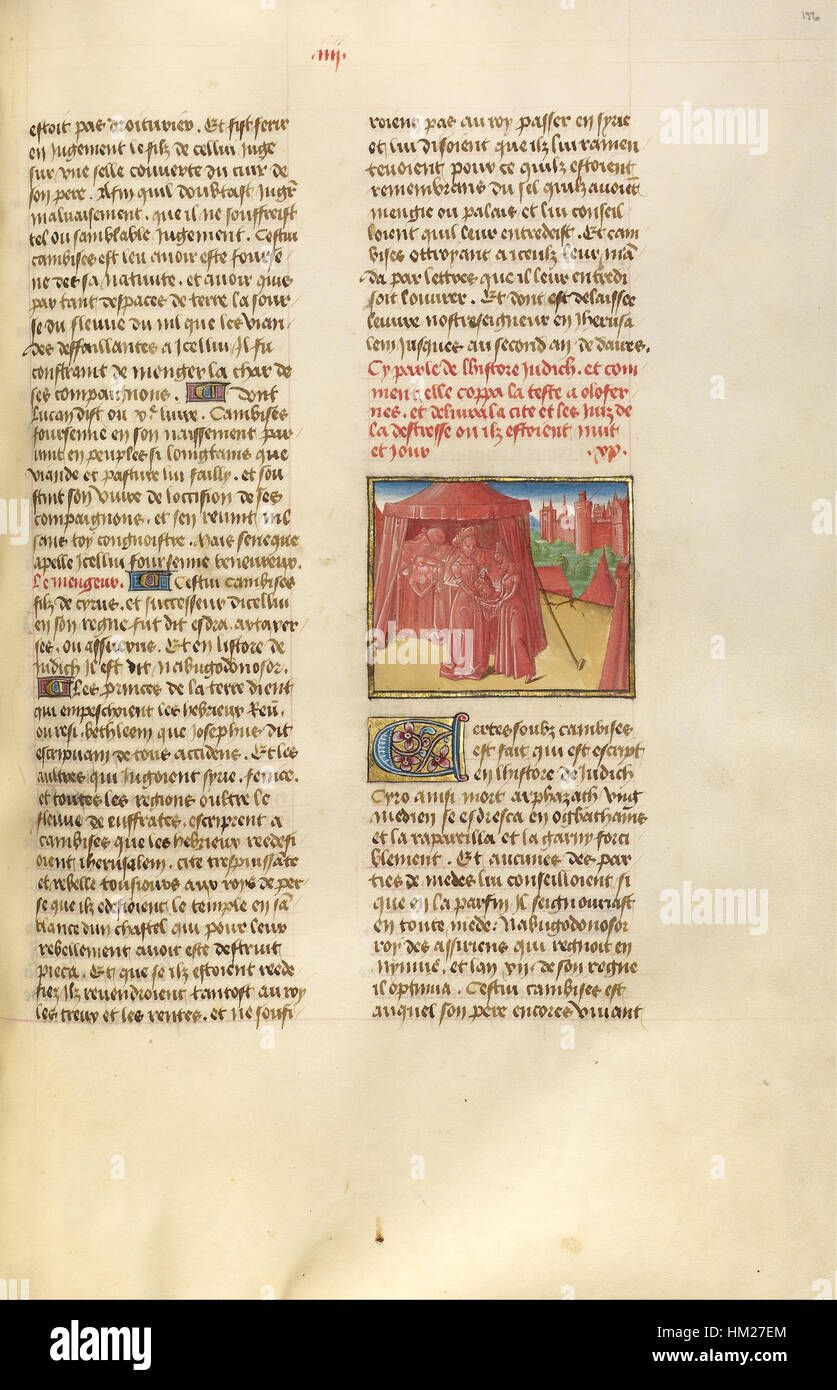 156
.iiij.
estoit pas droiturier. Et fist ferir
en Jugement le filz de cellui Juge
sur vne selle couuerte du cuir de
son pere. Afin quil doubtast Jugr
malvaisement. que il ne souffreist
tel ou samblable Jugement. Cestui
cambises est leu auoir este fourse
ne des sa natiuite. et auoir quis
par tant despaces de terre la sour
se du fleuue du nil que les vian-
des deffaillantes a Icellui Il fu
constraint de menger la char de
ses compaignons. Dont
Lucan dist ou vᵉ liure. Cambises
foursenne en son naissement par
uint en peuples si longtamps que
viande et pasture lui failly. et sou
stint son viure de loccision de ses
compaignons. et sen reuint nil
sans toy congnoistre. Mais seneque
apelle Icellui foursenne beneureux.
Le mengeur. Cestui cambises
filz de cyrus. et successeur dicellui
en son regne fut dit esdra. artaxer
ses. ou assuerus. Et en listore de
Judich Il est dit Nabugodonosor.
Les princes de la terre dient
qui empeschoient les hebrieux
bethleem que Josephus dit
escripuain de tous accidens. Et les
aultres qui Jugoient syrie. fenice.
et toutes les regions oultre le
fleuue de euffrates. escriprent a
cambises que les hebrieux reedefi
oient iherusalem. cite trespuissante
et rebelle tousiours aux roys de per
se que ilz edefioient le temple en sa
blance dun chastel qui pour leur
rebellement auoit este destruit
pieca. Et que se ilz estoient reede
fiez Ilz reuendroient tantost au roy
les treux et les rentes. et ne souffi
roient pas au roy passer en syrie
et lui disoient que ilz lui ramen
teuoient pour ce quilz estoient
remembrans du sel quilz auoiēt
mengie ou palais et lui conseil
loient quil leur entredeist. Et cam
bises ottroyant a iceulz leur mā
da par lettres que il leur entredi
soit louurer. Et dont est delaissee
leuure nostreseigneur en Iherusa
lem Jusques au second an de daires.
Cy parle de lhistore Judich. et com
ment elle coppa la teste a olofer
nes. et deliura la cite et les Juiz de
la destresse ou ilz estoient nuit
et Jour .xv.
Certes soubz cambises
est fait qui est escript
en lhistore de Judich
Cyro ainsi mort arphaxath vng
medien se esdresca en egbathanis
et la rapareilla et la garny forci
blement. Et aucunes des par
ties de medes lui conseilloient si
que en la parfin Il seignouriast
en toute mede. Nabugodonosor
roy des assiriens qui regnoit en
Nyniue. et lan xij. de son regne
il optinua. Cestui cambises est
auquel son pere encores viuant
alamy
a
a
a
alamy
a
a
alamy
a
a
alamy
Image ID: HM27EM
www.alamy.com